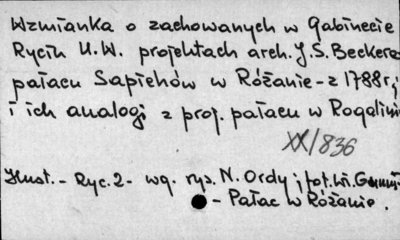 Wzmianka o zachowanych w Gabinecie
Rycin U.W. projektach arch. J.S. Beckera
pałacu Sapiehów w Różanie - z 1788 r.;
i ich analogj z proj. pałacu w Rogalinie
XX/836
Ilust. - Ryc. 2 - wg. rys. N. Ordy i fot. Wł.
- Pałac w Różanie.